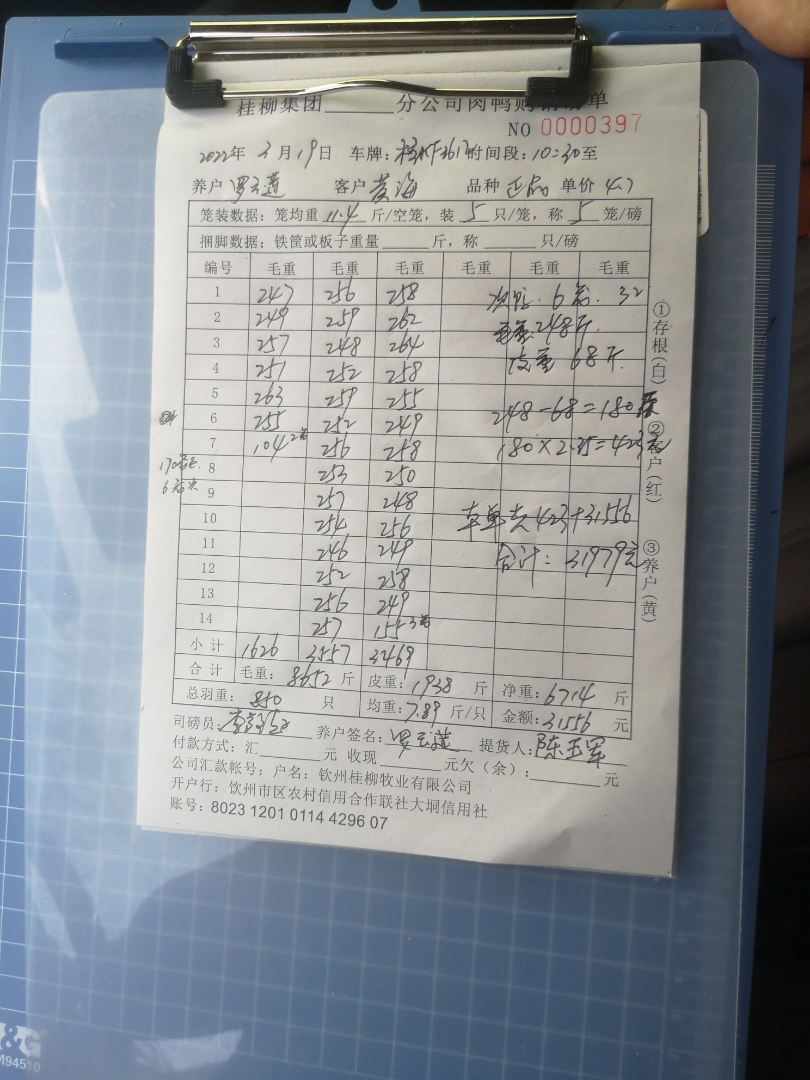 桂柳集团______分公司肉鸭购销清单
NO 0000397
2022年 3月19日 车牌: 时间段:10:30至
养户 罗云莲 客户 黄海 品种 正品 单价 4.7
笼装数据:笼均重 11.4 斤/空笼,装 5 只/笼,称 5 笼/磅
捆脚数据:铁筐或板子重量______斤,称______只/磅
编号 毛重 毛重 毛重 毛重 毛重 毛重
1 247 256 258 6 32
2 249 259 262 248斤.
3 257 248 264 皮重 68斤.
4 251 252 258
5 263 259 255
6 255 252 249 248-68=180斤
7 104 2笼 256 258 180×2.35=423元
8 253 250
170笼
9 257 248
6笼次
10 254 256 423+31556
11 246 249 合计: 31979元
12 252 258
13 256 249
14 257 155 3笼
小计 1626 3557 3469
合计 毛重: 8652 斤 皮重: 1938 斤 净重: 6714 斤
总羽重: 850 只 均重: 7.89 斤/只 金额: 31556 元
司磅员: 养户签名: 罗云莲 提货人: 陈玉军
付款方式:汇______元 收现______元欠(余):______元
公司汇款帐号:户名:钦州桂柳牧业有限公司
开户行:饮州市区农村信用合作联社大垌信用社
账号:8023 1201 0114 4296 07
①存根(白)
②客户(红)
③养户(黄)
&G
M94510